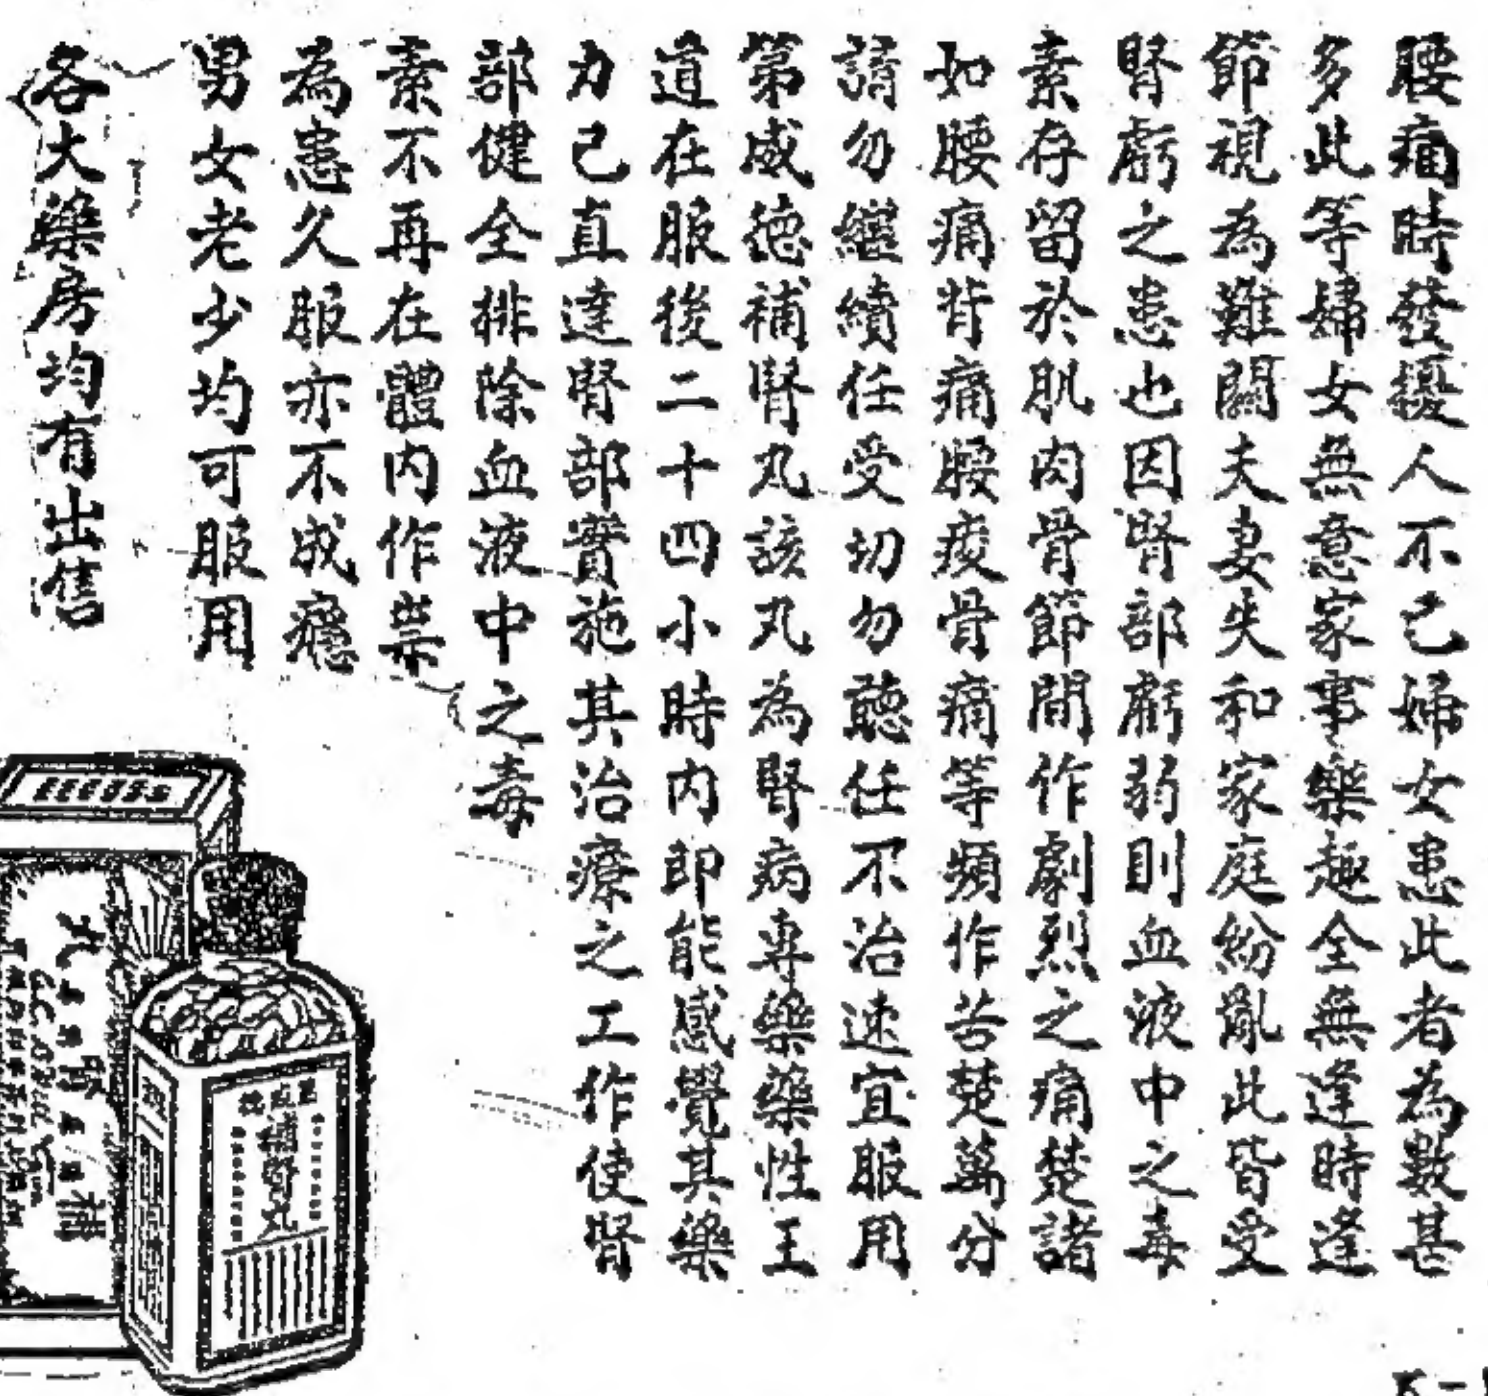 腰痛時發擾人不已婦女患此者為數甚
多此等婦女無意家事樂趣全無逢時逢
節視為難關夫妻失和家庭紛亂此皆受
腎虧之患也因腎部虧弱則血液中之毒
素存留於肌肉骨節間作劇烈之痛楚諸
如腰痛背痛腰痠骨痛等頻作苦楚萬分
請勿繼續任受切勿聽任不治速宜服用
第威德補腎丸該丸為腎病專藥藥性王
道在服後二十四小時內即能感覺其藥
力已直達腎部實施其治療之工作使腎
部健全排除血液中之毒
素不再在體內作祟
為患久服亦不成癮
男女老少均可服用
各大藥房均有出售
補腎丸